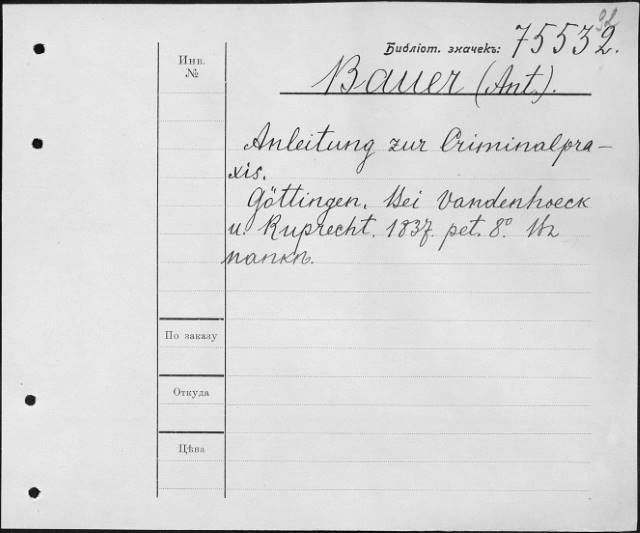 Библіот. значекъ: 75532.
Инв.
№
Bauer (Ant.).
Anleitung zur Criminalpra-
xis.
Göttingen. Bei Vandenhoeck
u. Ruprecht. 1837. pet. 8°.
папкѣ.
По заказу
Откуда
Цѣна